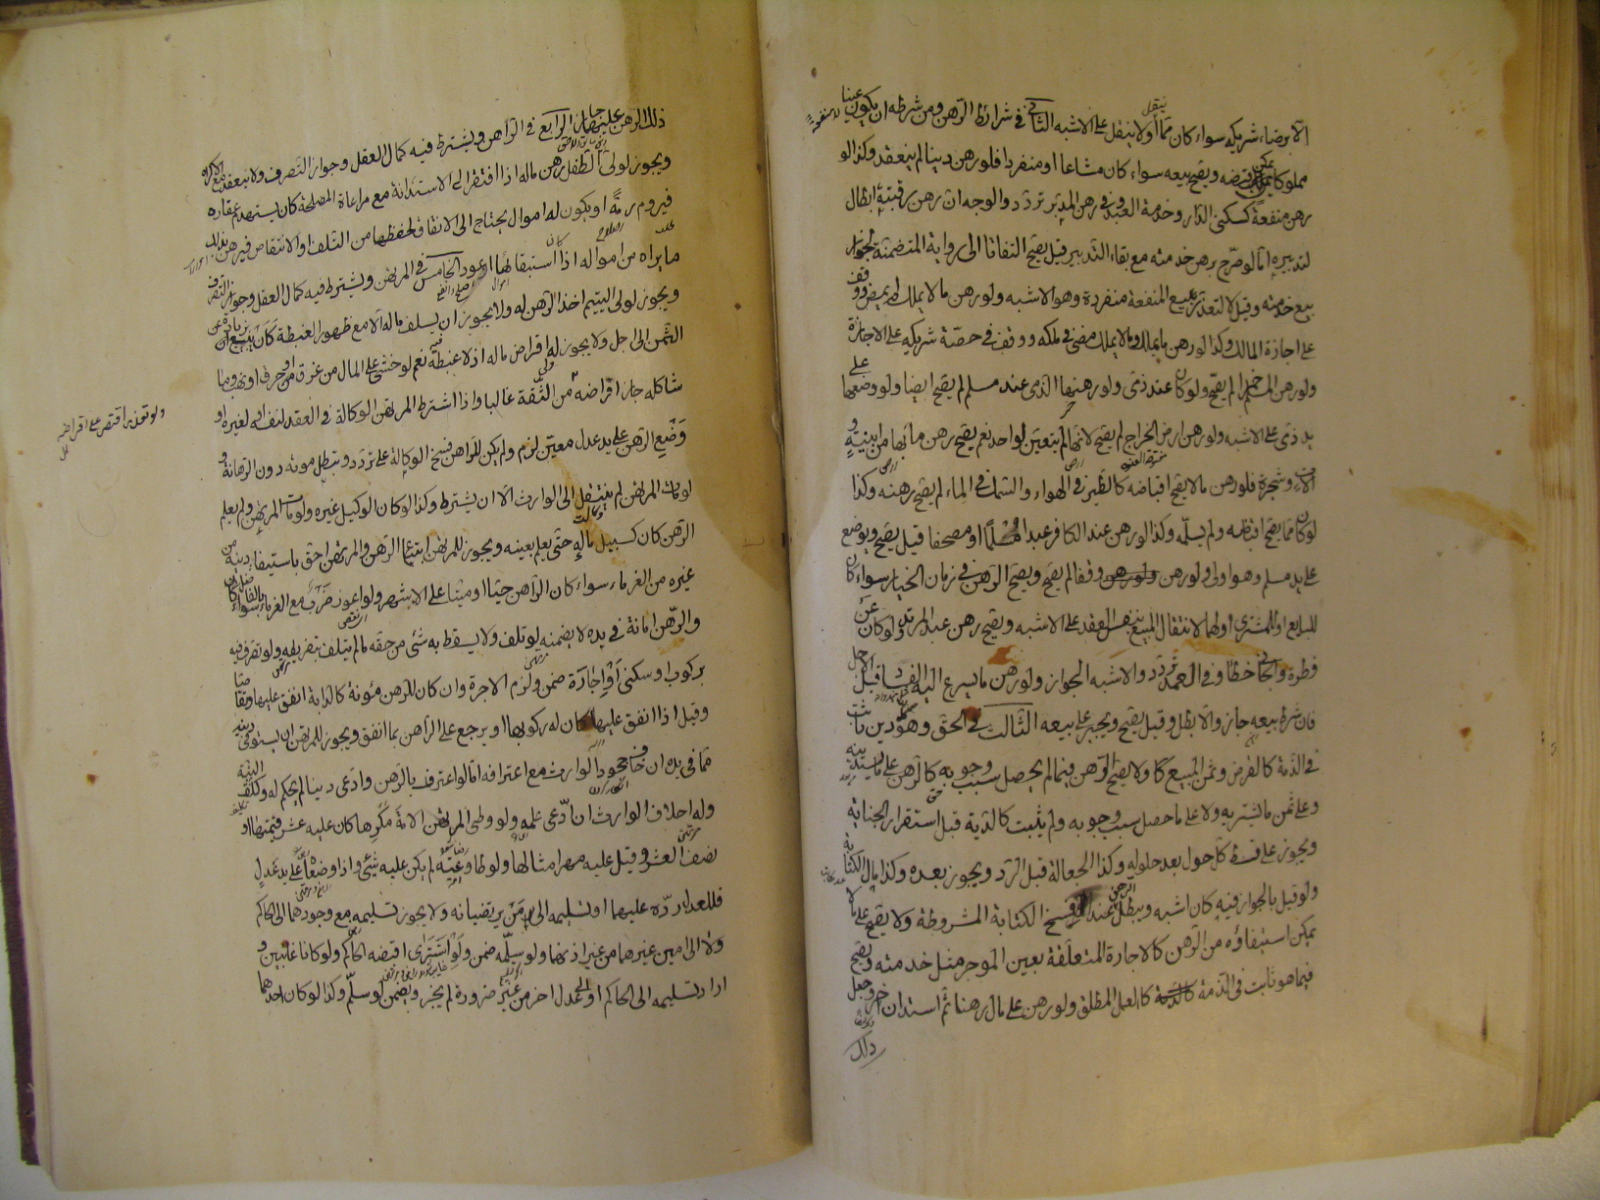 الا برضاء شريكه سواء كان مما ينقل اولا ينقل على الاشبه الثاني في شرائط الرهن ومن شرطه ان يكون عينا
مملوكا يمكن قبضه ويصح بيعه سواء كان مشاعا او منفردا فلو رهن دينا لم ينعقد وكذا لو
رهن منفعة كسكنى الدار وخدمة العبد وفي رهن المدبر تردد والوجه ان رهن رقبته ابطال
لتدبيره اما لو صرح برهن خدمته مع بقاء التدبير قيل يصح التفاتا الى رواية المتضمنة لجواز
بيع خدمته وقيل لا لتعذر بيع المنفعة منفردة وهو الاشبه ولو رهن ما لا يملك لم يمض ووقف
على اجازة المالك وكذا لو رهن ما يملك وما لا يملك مضى في ملكه ووقف في حصة شريكه على الاجازة
ولو رهن المسلم خمرا لم يصح ولو كان عند ذمي ولو رهنها الذمي عند مسلم لم يصح ايضا ولو وضعها على
يد ذمي على الاشبه ولو رهن ارض الخراج لم يصح لانها لم يتعين لواحد نعم يصح رهن ما بها من ابنية و
الات وشجرة فلو رهن ما لا يصح اقباضه كالطير في الهواء والسمك في الماء لم يصح رهنه وكذا
لو كان مما يصح اقباضه ولم يسلمه وكذا لو رهن عند الكافر عبدا مسلما او مصحفا قيل يصح ويوضع
على يد مسلم وهو اولى ولو رهن وقفا لم يصح ويصح الرهن في زمان الخيار سواء كان
للبايع او للمشتري او لهما لانتقال المبيع بنفس العقد على الاشبه ويصح رهن عبد المرتد ولو كان عن
فطرة والجاني خطأ وفي العمد تردد والاشبه الجواز ولو رهن ما يسرع اليه الفساد قبل الاجل
فان شرط بيعه جاز والا بطل وقيل يصح ويجبر على بيعه الثالث في الحق وهو دين ثابت
في الذمة كالقرض وثمن المبيع فلا يصح الرهن فيما لم يحصل سبب وجوبه كالرهن على ما يستدينه
وعلى ثمن ما يشتريه ولا على ما حصل سبب وجوبه ولم يثبت كالدية قبل استقرار الجناية
ويجوز على قسط كل حول بعد حلوله وكذا الجعالة قبل الرد ويجوز بعده وكذا مال الكتابة
ولو قيل بالجواز فيه كان اشبه ويبطل الرهن عند فسخ الكتابة المشروطة ولا يصح على ما لا
يمكن استيفاؤه من الرهن كالاجارة المتعلقة بعين الموجر مثل خدمته ويصح
فيما هو ثابت في الذمة كالعمل المطلق ولو رهن على مال رهنا ثم استدان اخر وجعل
ذلك
ذلك الرهن عليهما جاز الرابع في الراهن ويشترط فيه كمال العقل وجواز التصرف ولا ينعقد مع الاكراه
ويجوز لولي الطفل رهن ماله اذا افتقر الى الاستدانة مع مراعاة المصلحة كان يستهدم عقاره
فيروم رمة او يكون له اموال يحتاج الى الانفاق لحفظها من التلف او الانتقاص فيرهن بذلك
ما يراه من امواله اذا كان استبقاؤها اعود الخامس في المرتهن ويشترط فيه كمال العقل وجواز التصرف
ويجوز لولي اليتيم اخذ الرهن له ولا يجوز ان يسلف ماله الا مع ظهور الغبطة كان يبيع بزيادة عن
الثمن الى اجل ولا يجوز له اقراض ماله اذ لا غبطة فيه نعم لو خشي على المال من غرق او حرق او نهب وما
شاكله جاز اقراضه من الثقة غالبا واذا اشترط المرتهن الوكالة في العقد لنفسه او لغيره او
وضع الرهن على يد عدل معين لزم ولم يكن للراهن فسخ الوكالة على تردد ويبطل موته دون الرهانة و
لو مات المرتهن لم ينتقل الى الوارث الا ان يشترط وكذا لو كان الوكيل غيره ولو مات المرتهن ولم يعلم
الرهن كان كسبيل ماله حتى يعلم بعينه ويجوز للمرتهن ابتياع الرهن والمرتهن احق باستيفاء دينه من
غيره من الغرماء سواء كان الراهن حيا او ميتا على الاشهر ولو اعوز ضرب مع الغرماء بالفاضل
والرهن امانة في يده لا يضمنه لو تلف ولا يسقط به شئ من حقه ما لم يتلف بتفريطه ولو تصرف فيه
بركوب او سكنى او اجارة ضمن ولزم الاجرة وان كان للرهن مؤنة كالدابة انفق عليها وتقاصا
وقيل اذا انفق عليها كان له ركوبها او يرجع على الراهن بما انفق ويجوز للمرتهن ان يستوفي دينه
مما في يده ان خاف جحود الوارث مع اعترافه اما لو اعترف بالرهن وادعى دينا لم يحكم له وكلف البينة
وله احلاف الوارث ان ادعى علمه ولو وطى المرتهن الامة مكرها كان عليه عشر قيمتها او
نصف العشر وقيل عليه مهر امثالها ولو طاوعته لم يكن عليه شئ واذا وضعاه على يد عدل
فللعدل رده عليهما او تسليمه الى من يرتضيانه ولا يجوز تسليمه مع وجودهما الى الحاكم
ولا الى امين غيرهما من غير اذنهما ولو سلمه ضمن ولو استترا اقبضه الحاكم ولو كانا غائبين و
اراد تسليمه الى الحاكم او الى عدل اخر من غير ضرورة لم يجز ويضمن لو سلم وكذا لو كان احدهما
ولو تعذر اقتصر على اقراضه